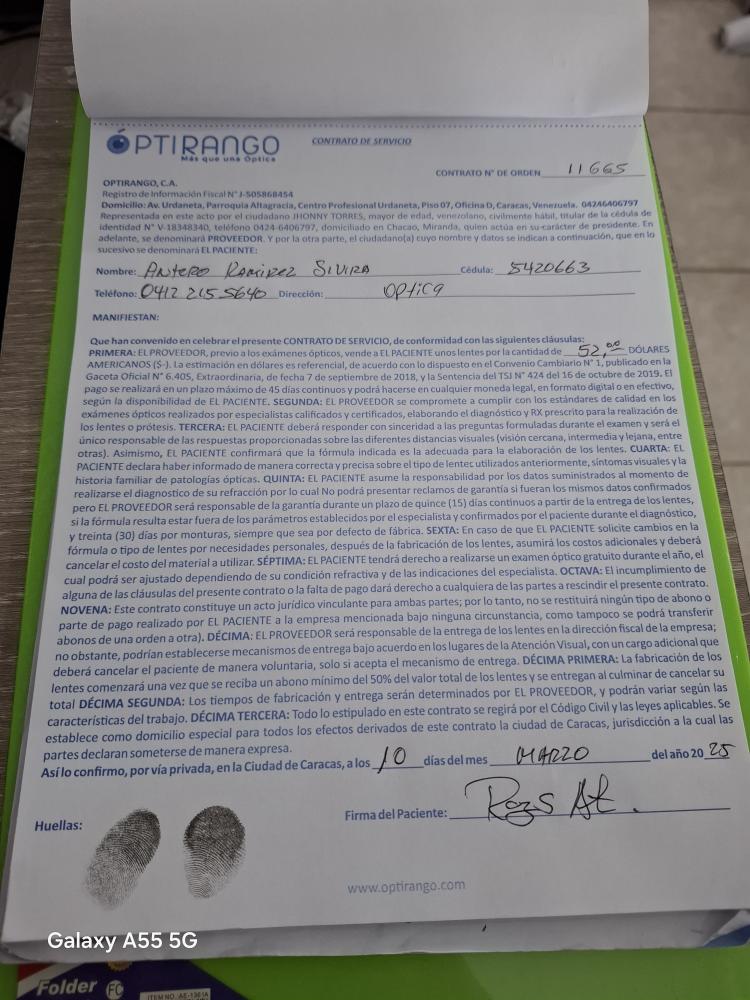 ÓPTIRANGO
Más que una Óptica
CONTRATO DE SERVICIO
CONTRATO N° DE ORDEN 11665
OPTIRANGO, C.A.
Registro de Información Fiscal N° J-505868454
Domicilio: Av. Urdaneta, Parroquia Altagracia, Centro Profesional Urdaneta, Piso 07, Oficina D, Caracas, Venezuela. 04246406797
Representada en este acto por el ciudadano JHONNY TORRES, mayor de edad, venezolano, civilmente hábil, titular de la cédula de
identidad N° V-18348340, teléfono 0424-6406797, domiciliado en Chacao, Miranda, quien actúa en su carácter de presidente. En
adelante, se denominará PROVEEDOR. Y por la otra parte, el ciudadano(a) cuyo nombre y datos se indican a continuación, que en lo
sucesivo se denominará EL PACIENTE:
Nombre: ANTERO RAMIREZ SIVIRA Cédula: 5420663
Teléfono: 0412 215 5640 Dirección: OPTICA
MANIFIESTAN:
Que han convenido en celebrar el presente CONTRATO DE SERVICIO, de conformidad con las siguientes cláusulas:
PRIMERA: EL PROVEEDOR, previo a los exámenes ópticos, vende a EL PACIENTE unos lentes por la cantidad de 52,00 DÓLARES
AMERICANOS ($-). La estimación en dólares es referencial, de acuerdo con lo dispuesto en el Convenio Cambiario N° 1, publicado en la
Gaceta Oficial N° 6.405, Extraordinaria, de fecha 7 de septiembre de 2018, y la Sentencia del TSJ N° 424 del 16 de octubre de 2019. El
pago se realizará en un plazo máximo de 45 días continuos y podrá hacerse en cualquier moneda legal, en formato digital o en efectivo,
según la disponibilidad de EL PACIENTE. SEGUNDA: EL PROVEEDOR se compromete a cumplir con los estándares de calidad en los
exámenes ópticos realizados por especialistas calificados y certificados, elaborando el diagnóstico y RX prescrito para la realización de
los lentes o prótesis. TERCERA: EL PACIENTE deberá responder con sinceridad a las preguntas formuladas durante el examen y será el
único responsable de las respuestas proporcionadas sobre las diferentes distancias visuales (visión cercana, intermedia y lejana, entre
otras). Asimismo, EL PACIENTE confirmará que la fórmula indicada es la adecuada para la elaboración de los lentes. CUARTA: EL
PACIENTE declara haber informado de manera correcta y precisa sobre el tipo de lentes utilizados anteriormente, síntomas visuales y la
historia familiar de patologías ópticas. QUINTA: EL PACIENTE asume la responsabilidad por los datos suministrados al momento de
realizarse el diagnostico de su refracción por lo cual No podrá presentar reclamos de garantía si fueran los mismos datos confirmados
pero EL PROVEEDOR será responsable de la garantía durante un plazo de quince (15) días continuos a partir de la entrega de los lentes,
si la fórmula resulta estar fuera de los parámetros establecidos por el especialista y confirmados por el paciente durante el diagnóstico,
y treinta (30) días por monturas, siempre que sea por defecto de fábrica. SEXTA: En caso de que EL PACIENTE solicite cambios en la
fórmula o tipo de lentes por necesidades personales, después de la fabricación de los lentes, asumirá los costos adicionales y deberá
cancelar el costo del material a utilizar. SÉPTIMA: EL PACIENTE tendrá derecho a realizarse un examen óptico gratuito durante el año, el
cual podrá ser ajustado dependiendo de su condición refractiva y de las indicaciones del especialista. OCTAVA: El incumplimiento de
alguna de las cláusulas del presente contrato o la falta de pago dará derecho a cualquiera de las partes a rescindir el presente contrato.
NOVENA: Este contrato constituye un acto jurídico vinculante para ambas partes; por lo tanto, no se restituirá ningún tipo de abono o
parte de pago realizado por EL PACIENTE a la empresa mencionada bajo ninguna circunstancia, como tampoco se podrá transferir
abonos de una orden a otra). DÉCIMA: EL PROVEEDOR será responsable de la entrega de los lentes en la dirección fiscal de la empresa;
no obstante, podrían establecerse mecanismos de entrega bajo acuerdo en los lugares de la Atención Visual, con un cargo adicional que
deberá cancelar el paciente de manera voluntaria, solo si acepta el mecanismo de entrega. DÉCIMA PRIMERA: La fabricación de los
lentes comenzará una vez que se reciba un abono mínimo del 50% del valor total de los lentes y se entregan al culminar de cancelar su
total DÉCIMA SEGUNDA: Los tiempos de fabricación y entrega serán determinados por EL PROVEEDOR, y podrán variar según las
características del trabajo. DÉCIMA TERCERA: Todo lo estipulado en este contrato se regirá por el Código Civil y las leyes aplicables. Se
establece como domicilio especial para todos los efectos derivados de este contrato la ciudad de Caracas, jurisdicción a la cual las
partes declaran someterse de manera expresa.
Así lo confirmo, por vía privada, en la Ciudad de Caracas, a los 10 días del mes MARZO del año 2025
Firma del Paciente:
Huellas:
www.optirango.com
Galaxy A55 5G
Folder FC
ITEM NO. AE-1361A